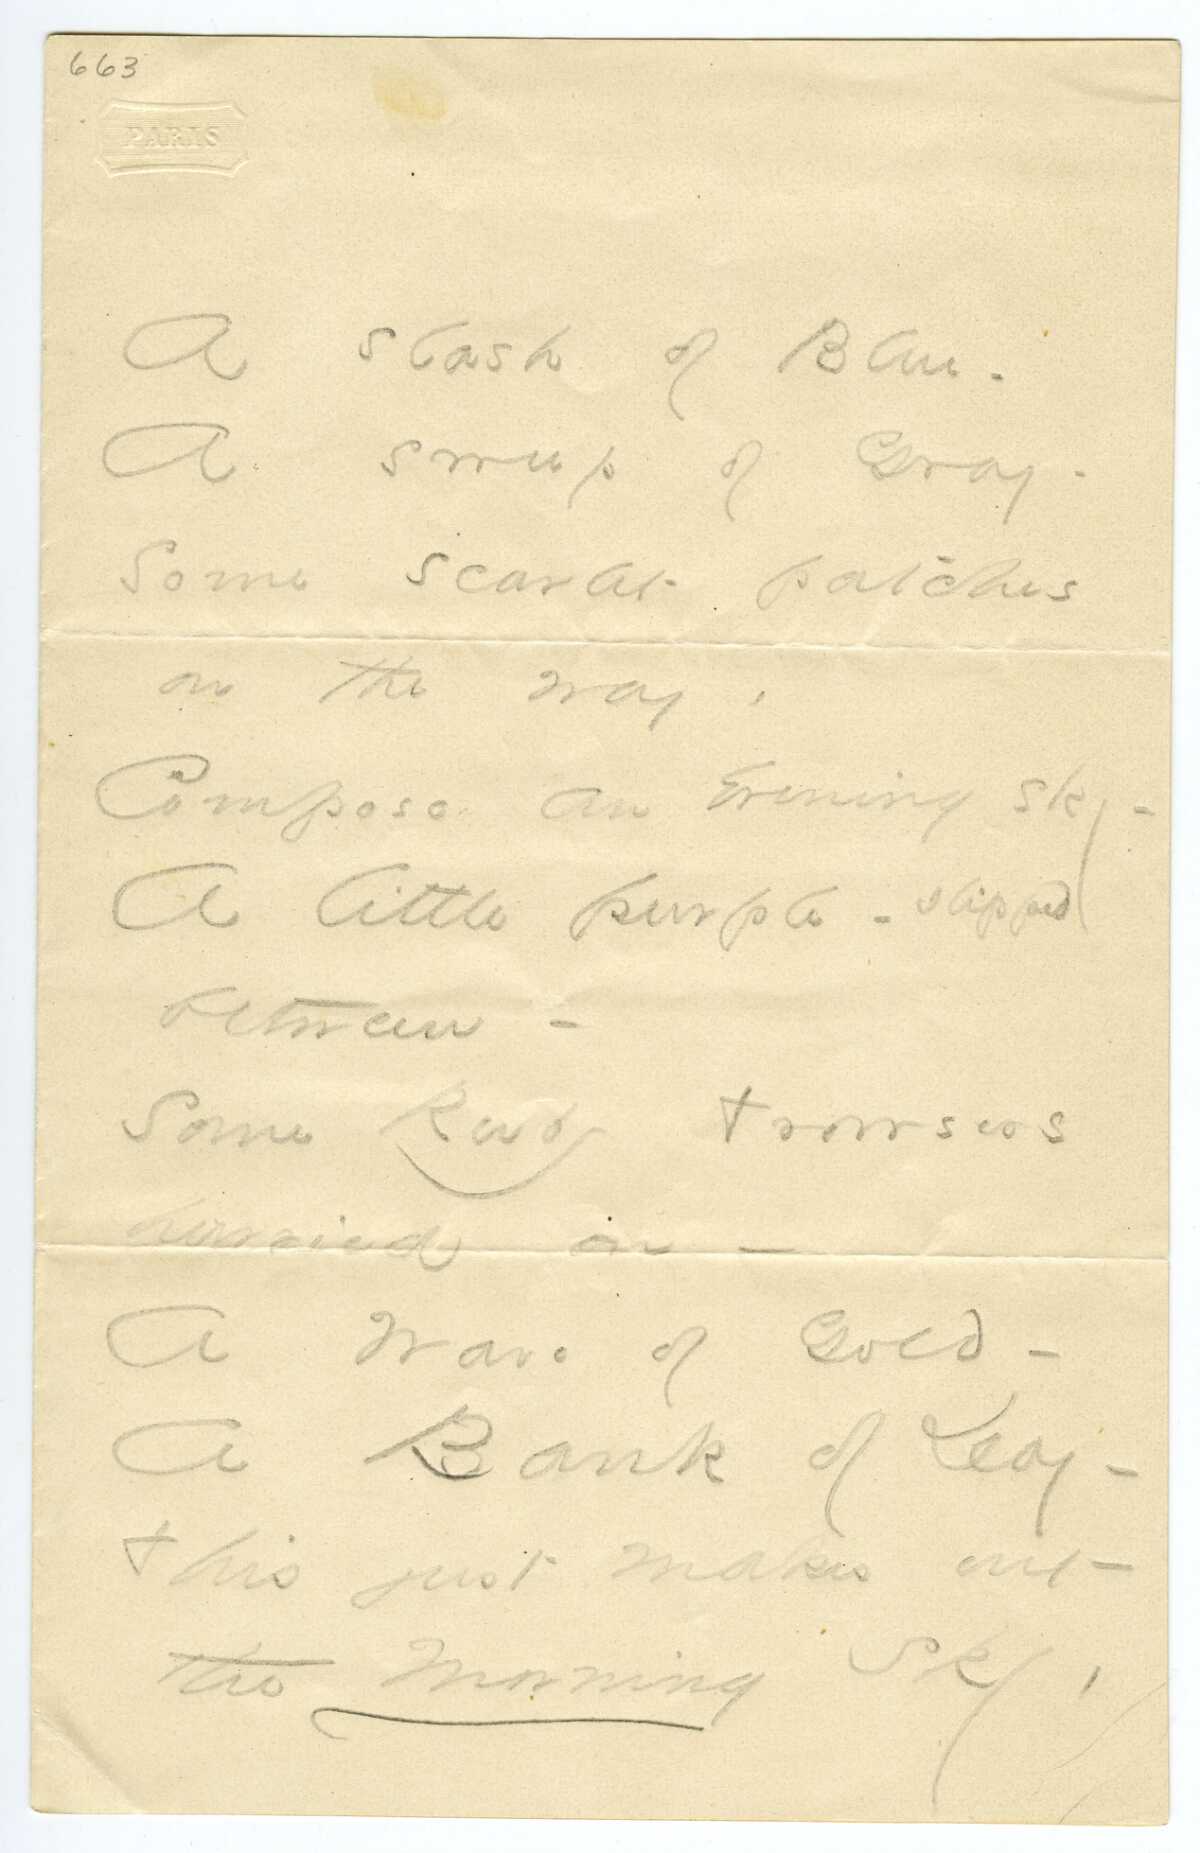 663
PARIS
A slash of Blue -
A sweep of Gray -
Some scarlet patches
on the way,
Compose an Evening Sky -
A little purple - slipped
between -
Some Ruby trowsers
hurried on -
A Wave of Gold -
A Bank of Day -
This just makes out
the Morning Sky,